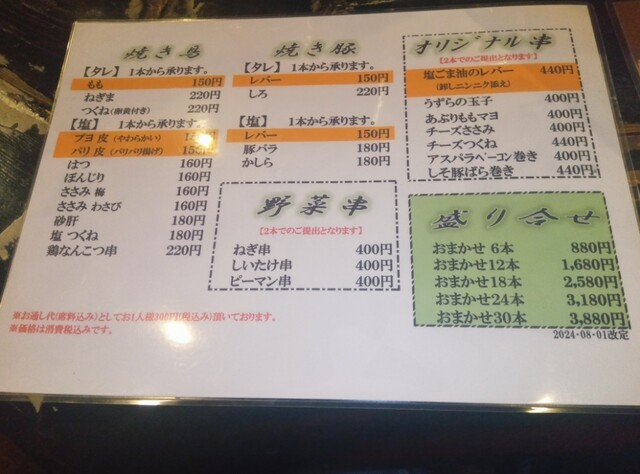 焼き鳥
【タレ】 1本から承ります。
もも 150円
ねぎま 220円
つくね(卵黄付き) 220円
【塩】 1本から承ります。
ブヨ 皮 (やわらかい)
パリ 皮 (パリパリ揚げ) 155円
はつ 160円
ぼんじり 160円
ささみ 梅 160円
ささみ わさび 160円
砂肝 180円
塩 つくね 180円
鶏なんこつ串 220円
焼き豚
【タレ】 1本から承ります。
レバー 150円
しろ 220円
【塩】 1本から承ります。
レバー 150円
豚バラ 180円
かしら 180円
野菜串
【2本でのご提出となります】
ねぎ串 400円
しいたけ串 400円
ピーマン串 400円
オリジナル串
【2本でのご提出となります】
塩ごま油のレバー 440円
(卸しニンニク添え)
うずらの玉子 400円
あぶりももマヨ 400円
チーズささみ 400円
チーズつくね 440円
アスパラベーコン巻き 400円
しそ豚ばら巻き 440円
盛り合せ
おまかせ 6本 880円
おまかせ12本 1,680円
おまかせ18本 2,580円
おまかせ24本 3,180円
おまかせ30本 3,880円
2024・08・01改定
※お通し代(席料込み)としてお1人様300円(税込み)頂いております。
※価格は消費税込みです。